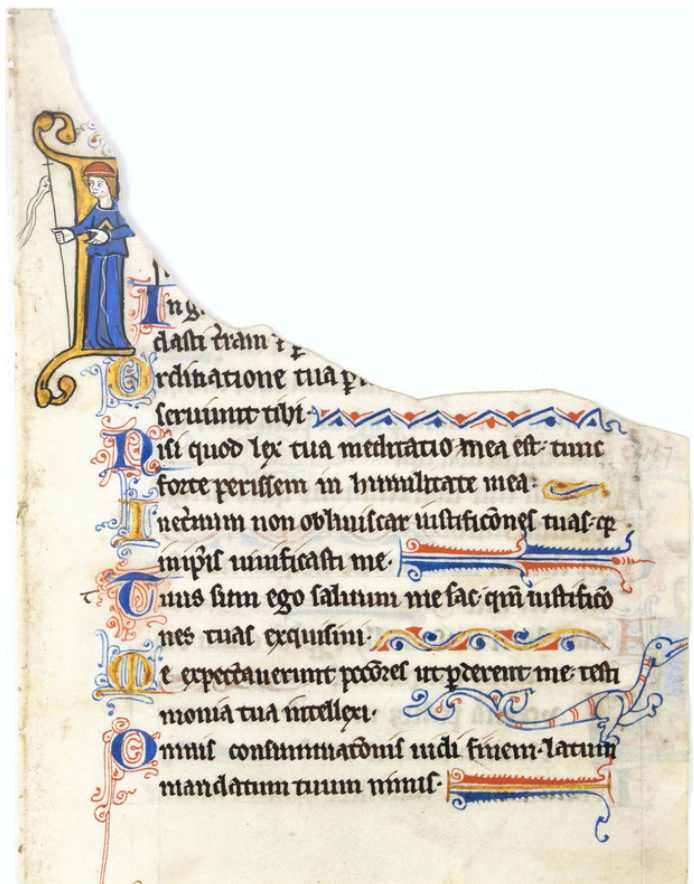 In g
dasti t̄ram ⁊
Ordinatione tua p
seruiunt tibi·
Nisi quod lex tua meditatio mea est· tunc
forte perissem in humilitate mea·
Inet̄num non obliuiscar iustificōnes tuas· qꝛ
inip̄is uiuificasti me·
Tuus sum ego saluum me fac· qm̄ iustificō
nes tuas exquisiui·
Me expectauerunt pccōres ut ꝑderent me· testi
monia tua intellexi·
Omnis consummatōnis uidi finem· latum
mandatum tuum nimis·